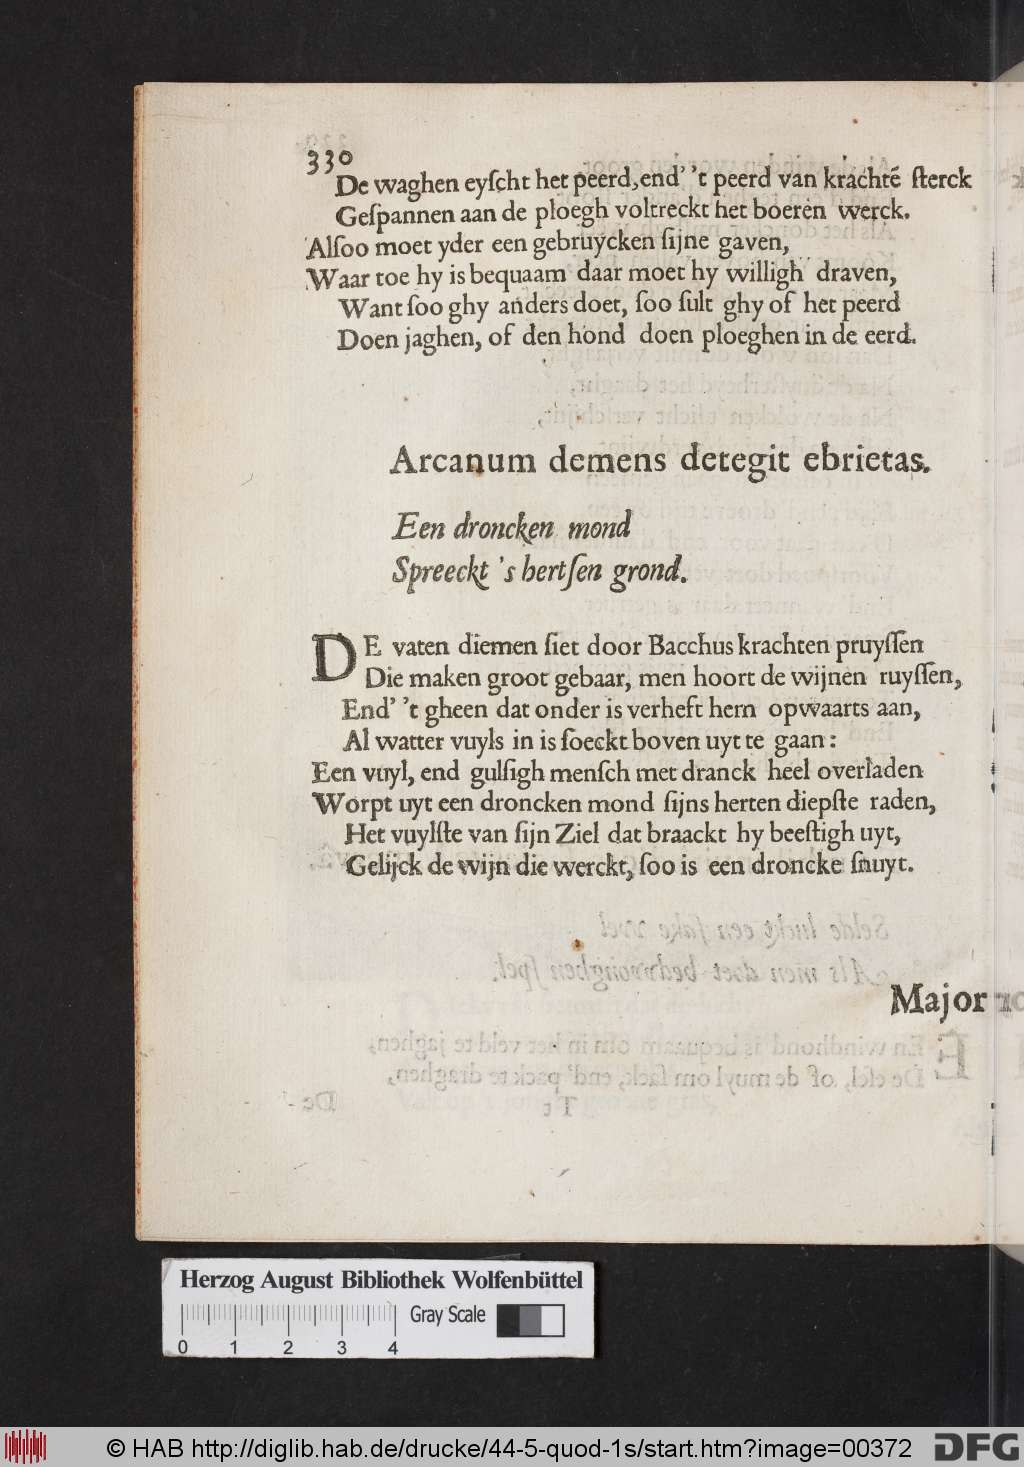 330
De waghen eyſcht het peerd, end' 't peerd van krachtẽ ſterck
Geſpannen aan de ploegh voltreckt het boeren werck.
Alſoo moet yder een gebruycken ſijne gaven,
Waar toe hy is bequaam daar moet hy willigh draven,
Want ſoo ghy anders doet, ſoo ſult ghy of het peerd
Doen jaghen, of den hond doen ploeghen in de eerd.
Arcanum demens detegit ebrietas.
Een droncken mond
Spreeckt 's hertſen grond.
DE vaten diemen ſiet door Bacchus krachten pruyſſen
Die maken groot gebaar, men hoort de wijnen ruyſſen,
End' 't gheen dat onder is verheft hem opwaarts aan,
Al watter vuyls in is ſoeckt boven uyt te gaan:
Een vuyl, end gulſigh menſch met dranck heel overladen
Worpt uyt een droncken mond ſijns herten diepſte raden,
Het vuylſte van ſijn Ziel dat braackt hy beeſtigh uyt,
Gelijck de wijn die werckt, ſoo is een droncke ſnuyt.
Major
Herzog August Bibliothek Wolfenbüttel
Gray Scale
0 1 2 3 4
© HAB http://diglib.hab.de/drucke/44-5-quod-1s/start.htm?image=00372
DFG